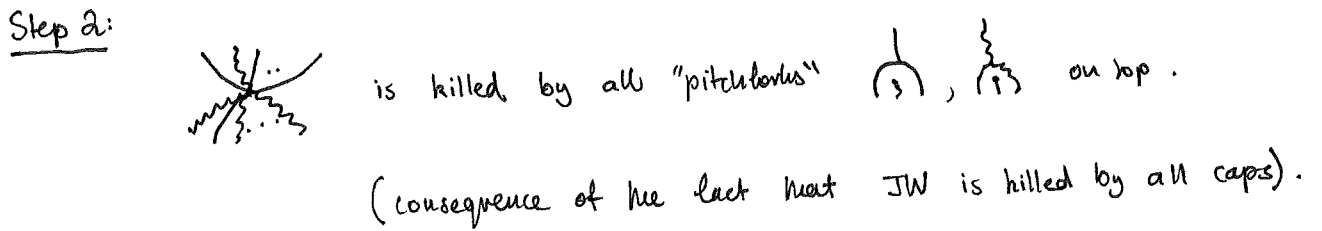 Step 2:
is killed by all "pitchforks" , on top .
(consequence of the fact that JW is killed by all caps).